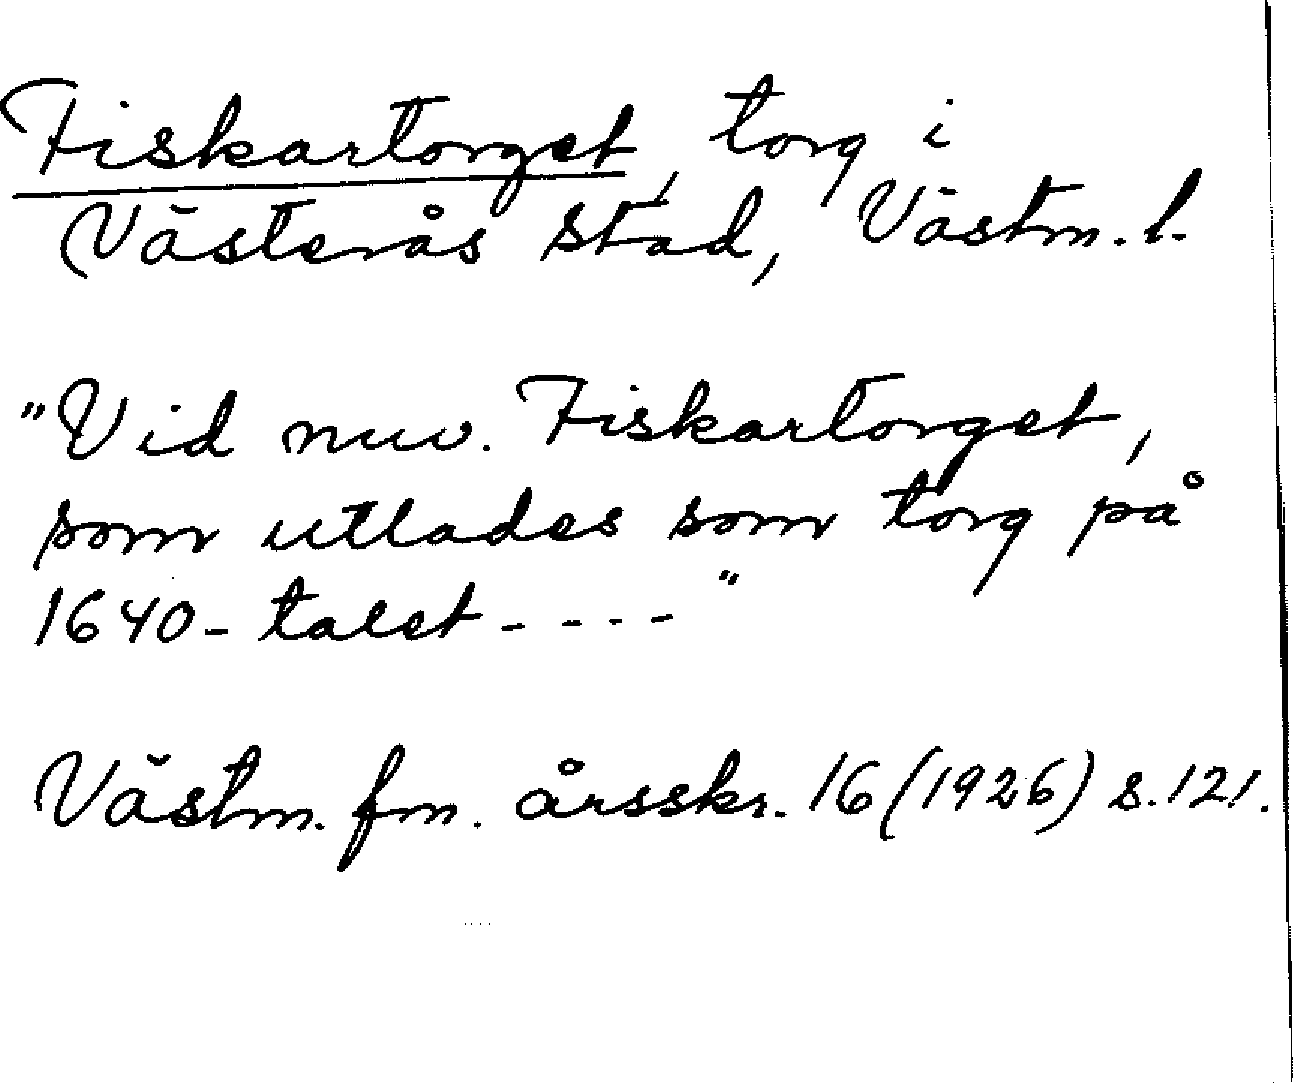 Fiskartorget, torg i
Västerås stad, Västm. l.
"Vid nuv. Fiskartorget,
som utlades som torg på
1640-talet - - - - "
Västm. fm. årsskr. 16 (1926) s. 121.